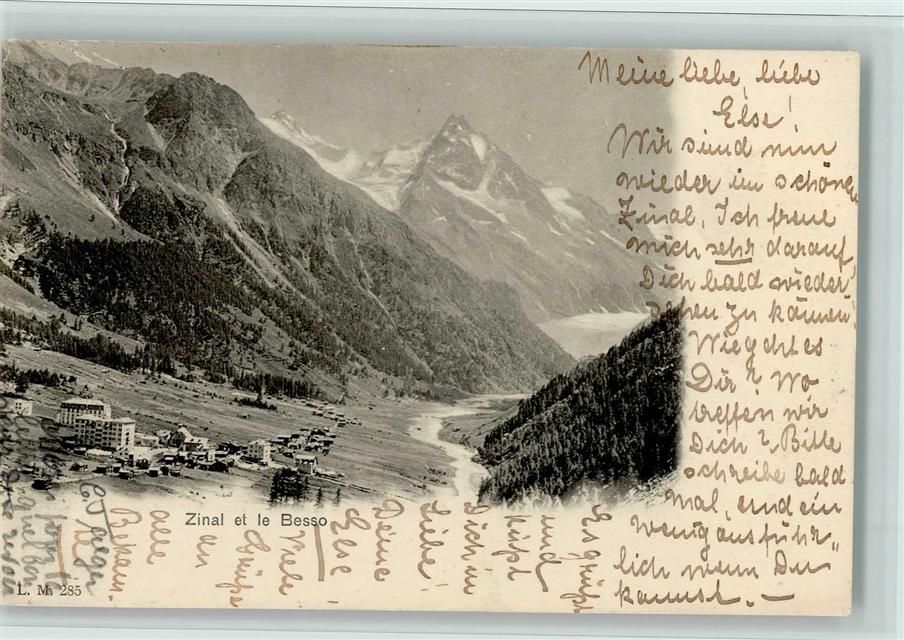 Meine liebe, liebe
Else!
Wir sind nun
wieder im schönen
Zinal. Ich freue
mich sehr darauf,
Dich bald wieder
sehen zu können!
Wie geht es
Dir? Wo
treffen wir
Dich? Bitte
schreibe bald
mal, und ein
wenig ausführ„
lich wenn Du
kannst. –
Es grüßt
und
küßt
Dich in
Liebe!
Deine
Else.
Viele
Grüße
an
alle
Bekann-
Zinal et le Besso
L. M. 285